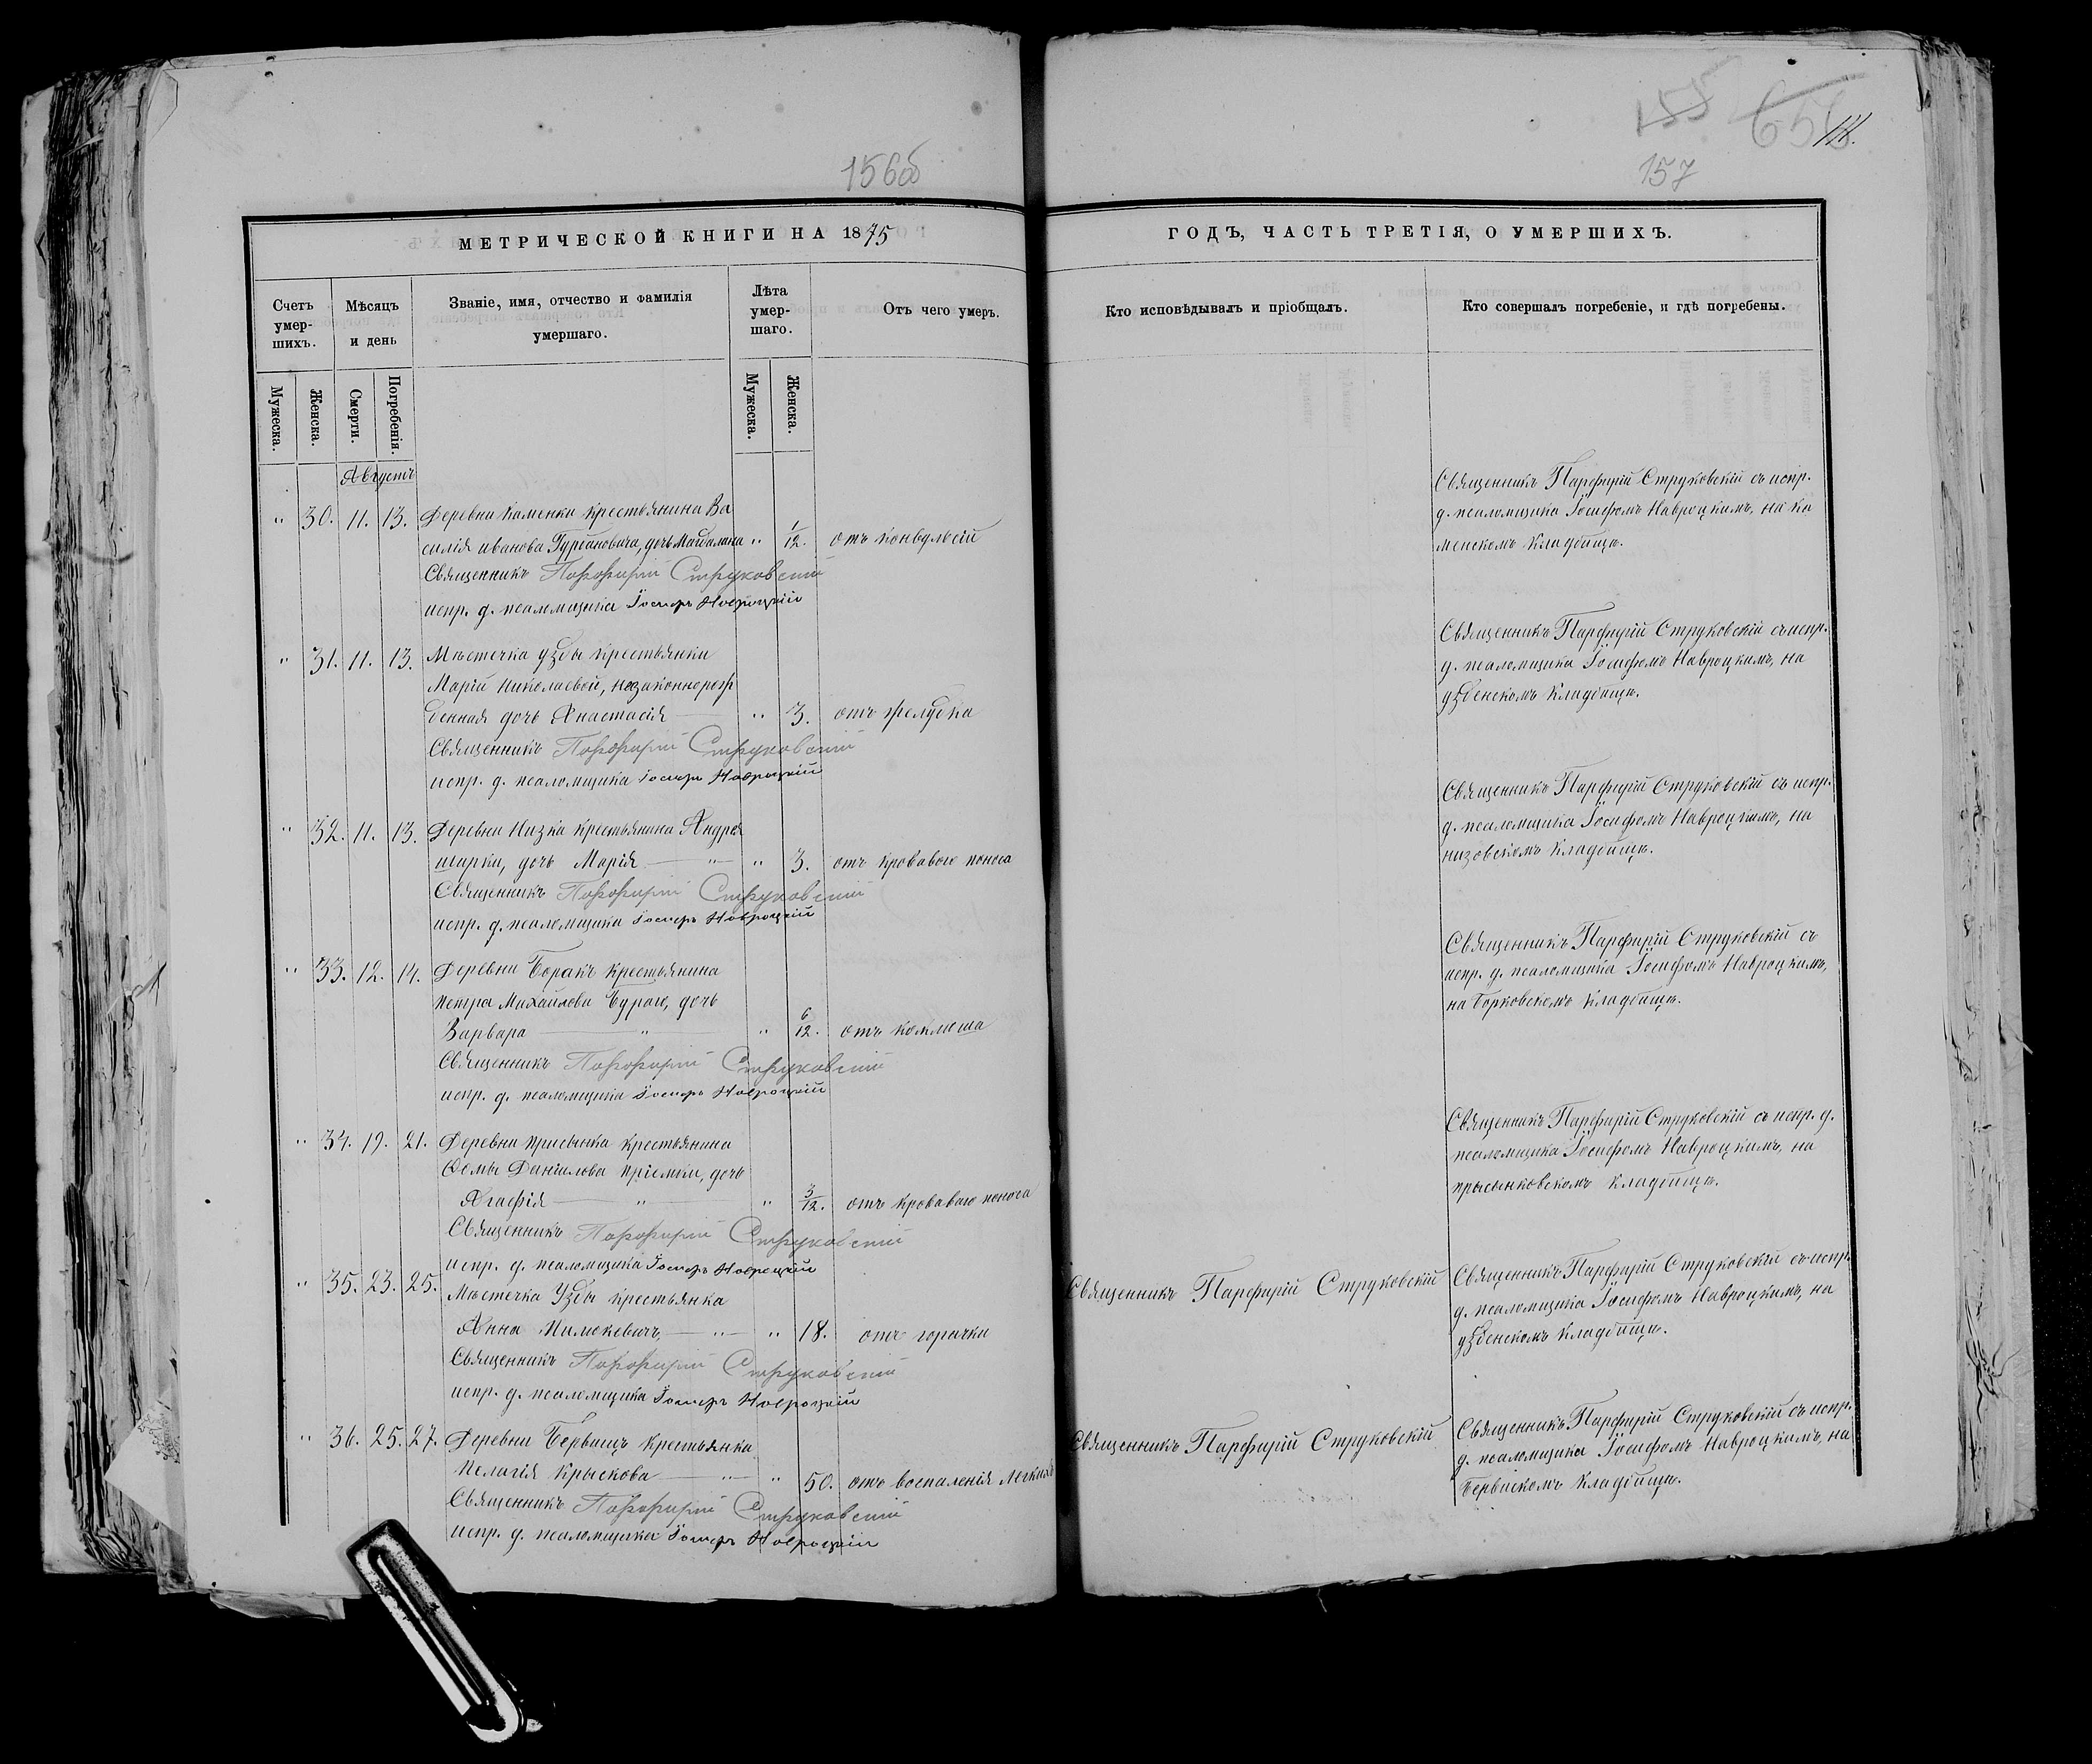 156об
155
157
МЕТРИЧЕСКОЙ КНИГИ НА 1875
Счетъ умер-шихъ.
Мѣсяцъ и день
Званіе, имя, отчество и фамилія умершаго.
Лѣта умер-шаго.
Отъ чего умеръ.
Мужеска.
Женска.
Смерти.
Погребенія.
Мужеска.
Женска.
Августъ
" 30. 11. 13. Деревни Каменки крестьянина Ва
силія Иванова дочь Магдалина " 1/12. отъ конвульсій
Священникъ Порфирій Струковскій
испр. д. псаломщика Іосифъ Навроцкій
" 31. 11. 13. Мѣстечка Узды крестьянки
Маріи Николаевой, незаконнорож
денная дочь Анастасія " 3. отъ желудка
Священникъ Порфирій Струковскій
испр. д. псаломщика Іосифъ Навроцкій
" 32. 11. 13. Деревни Низка крестьянина Андрея
Шурки, дочь Марія " " 3. отъ кроваваго поноса
Священникъ Порфирій Струковскій
испр. д. псаломщика Іосифъ Навроцкій
" 33. 12. 14. Деревни Боракъ крестьянина
Петра Михайлова дочь
Варвара " " 6/12. отъ коклюша
Священникъ Порфирій Струковскій
испр. д. псаломщика Іосифъ Навроцкій
" 34. 19. 21. Деревни Присынка крестьянина
Ѳомы Даніилова дочь
Агафія " " 3/12. отъ кроваваго поноса
Священникъ Порфирій Струковскій
испр. д. псаломщика Іосифъ Навроцкій
" 35. 23. 25. Мѣстечка Узды крестьянка
Анна " " 18. отъ горячки
Священникъ Порфирій Струковскій
испр. д. псаломщика Іосифъ Навроцкій
" 36. 25. 27. Деревни крестьянка
Пелагія Крыскова " " 50. отъ воспаленія легкихъ
Священникъ Порфирій Струковскій
испр. д. псаломщика Іосифъ Навроцкій
ГОДЪ, ЧАСТЬ ТРЕТІЯ, О УМЕРШИХЪ.
Кто исповѣдывалъ и пріобщалъ.
Кто совершалъ погребеніе, и гдѣ погребены.
Священникъ Парфирій Струковскій съ испр.
д. псаломщика Іосифомъ Навроцкимъ, на Ка
менскомъ кладбищѣ.
Священникъ Парфирій Струковскій съ испр.
д. псаломщика Іосифомъ Навроцкимъ, на
узденскомъ кладбищѣ.
Священникъ Парфирій Струковскій съ испр.
д. псаломщика Іосифомъ Навроцкимъ, на
низовскомъ кладбищѣ.
Священникъ Парфирій Струковскій съ
испр. д. псаломщика Іосифомъ Навроцкимъ,
на Борковскомъ кладбищѣ.
Священникъ Парфирій Струковскій съ испр. д.
псаломщика Іосифомъ Навроцкимъ, на
прысынковскомъ кладбищѣ.
Священникъ Парфирій Струковскій
Священникъ Парфирій Струковскій съ испр.
д. псаломщика Іосифомъ Навроцкимъ, на
узденскомъ кладбищѣ.
Священникъ Парфирій Струковскій
Священникъ Парфирій Струковскій съ испр.
д. псаломщика Іосифомъ Навроцкимъ, на
кладбищѣ.